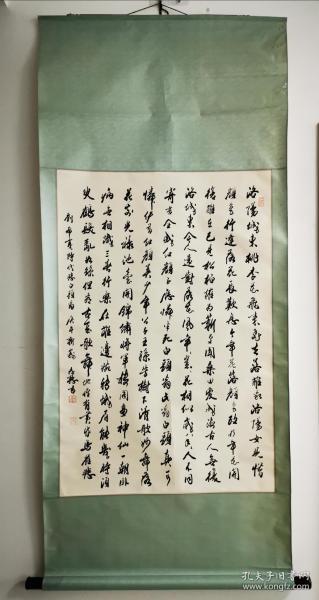 洛陽城東桃李花飛來飛去落誰家洛陽女兒惜
顏色行逢落花長歎息今年花落顏色改明年花開
復誰在已見松柏摧為薪更聞桑田變成海古人無復
洛城東今人還對落花風年年歲歲花相似歲歲年年人不同
寄言全盛紅顏子應憐半死白頭翁此翁白頭真可
憐伊昔紅顏美少年公子王孫芳樹下清歌妙舞落
花前光祿池臺開錦繡將軍樓閣畫神仙一朝臥
病無相識三春行樂在誰邊宛轉蛾眉能幾時須
臾鶴髮亂如絲但看古來歌舞地惟有黃昏鳥雀悲
劉希夷詩代悲白頭翁
孔夫子旧书网